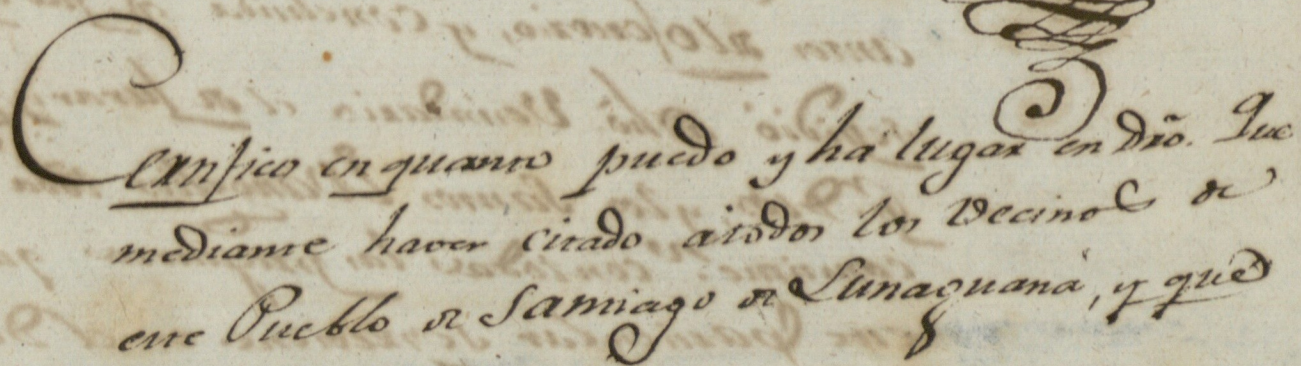 Certifico en quanto puedo y ha lugar en Dro. Que
mediante haver citado atodos los Vecinos de
este Pueblo de Santiago de Lunaguaná, y que